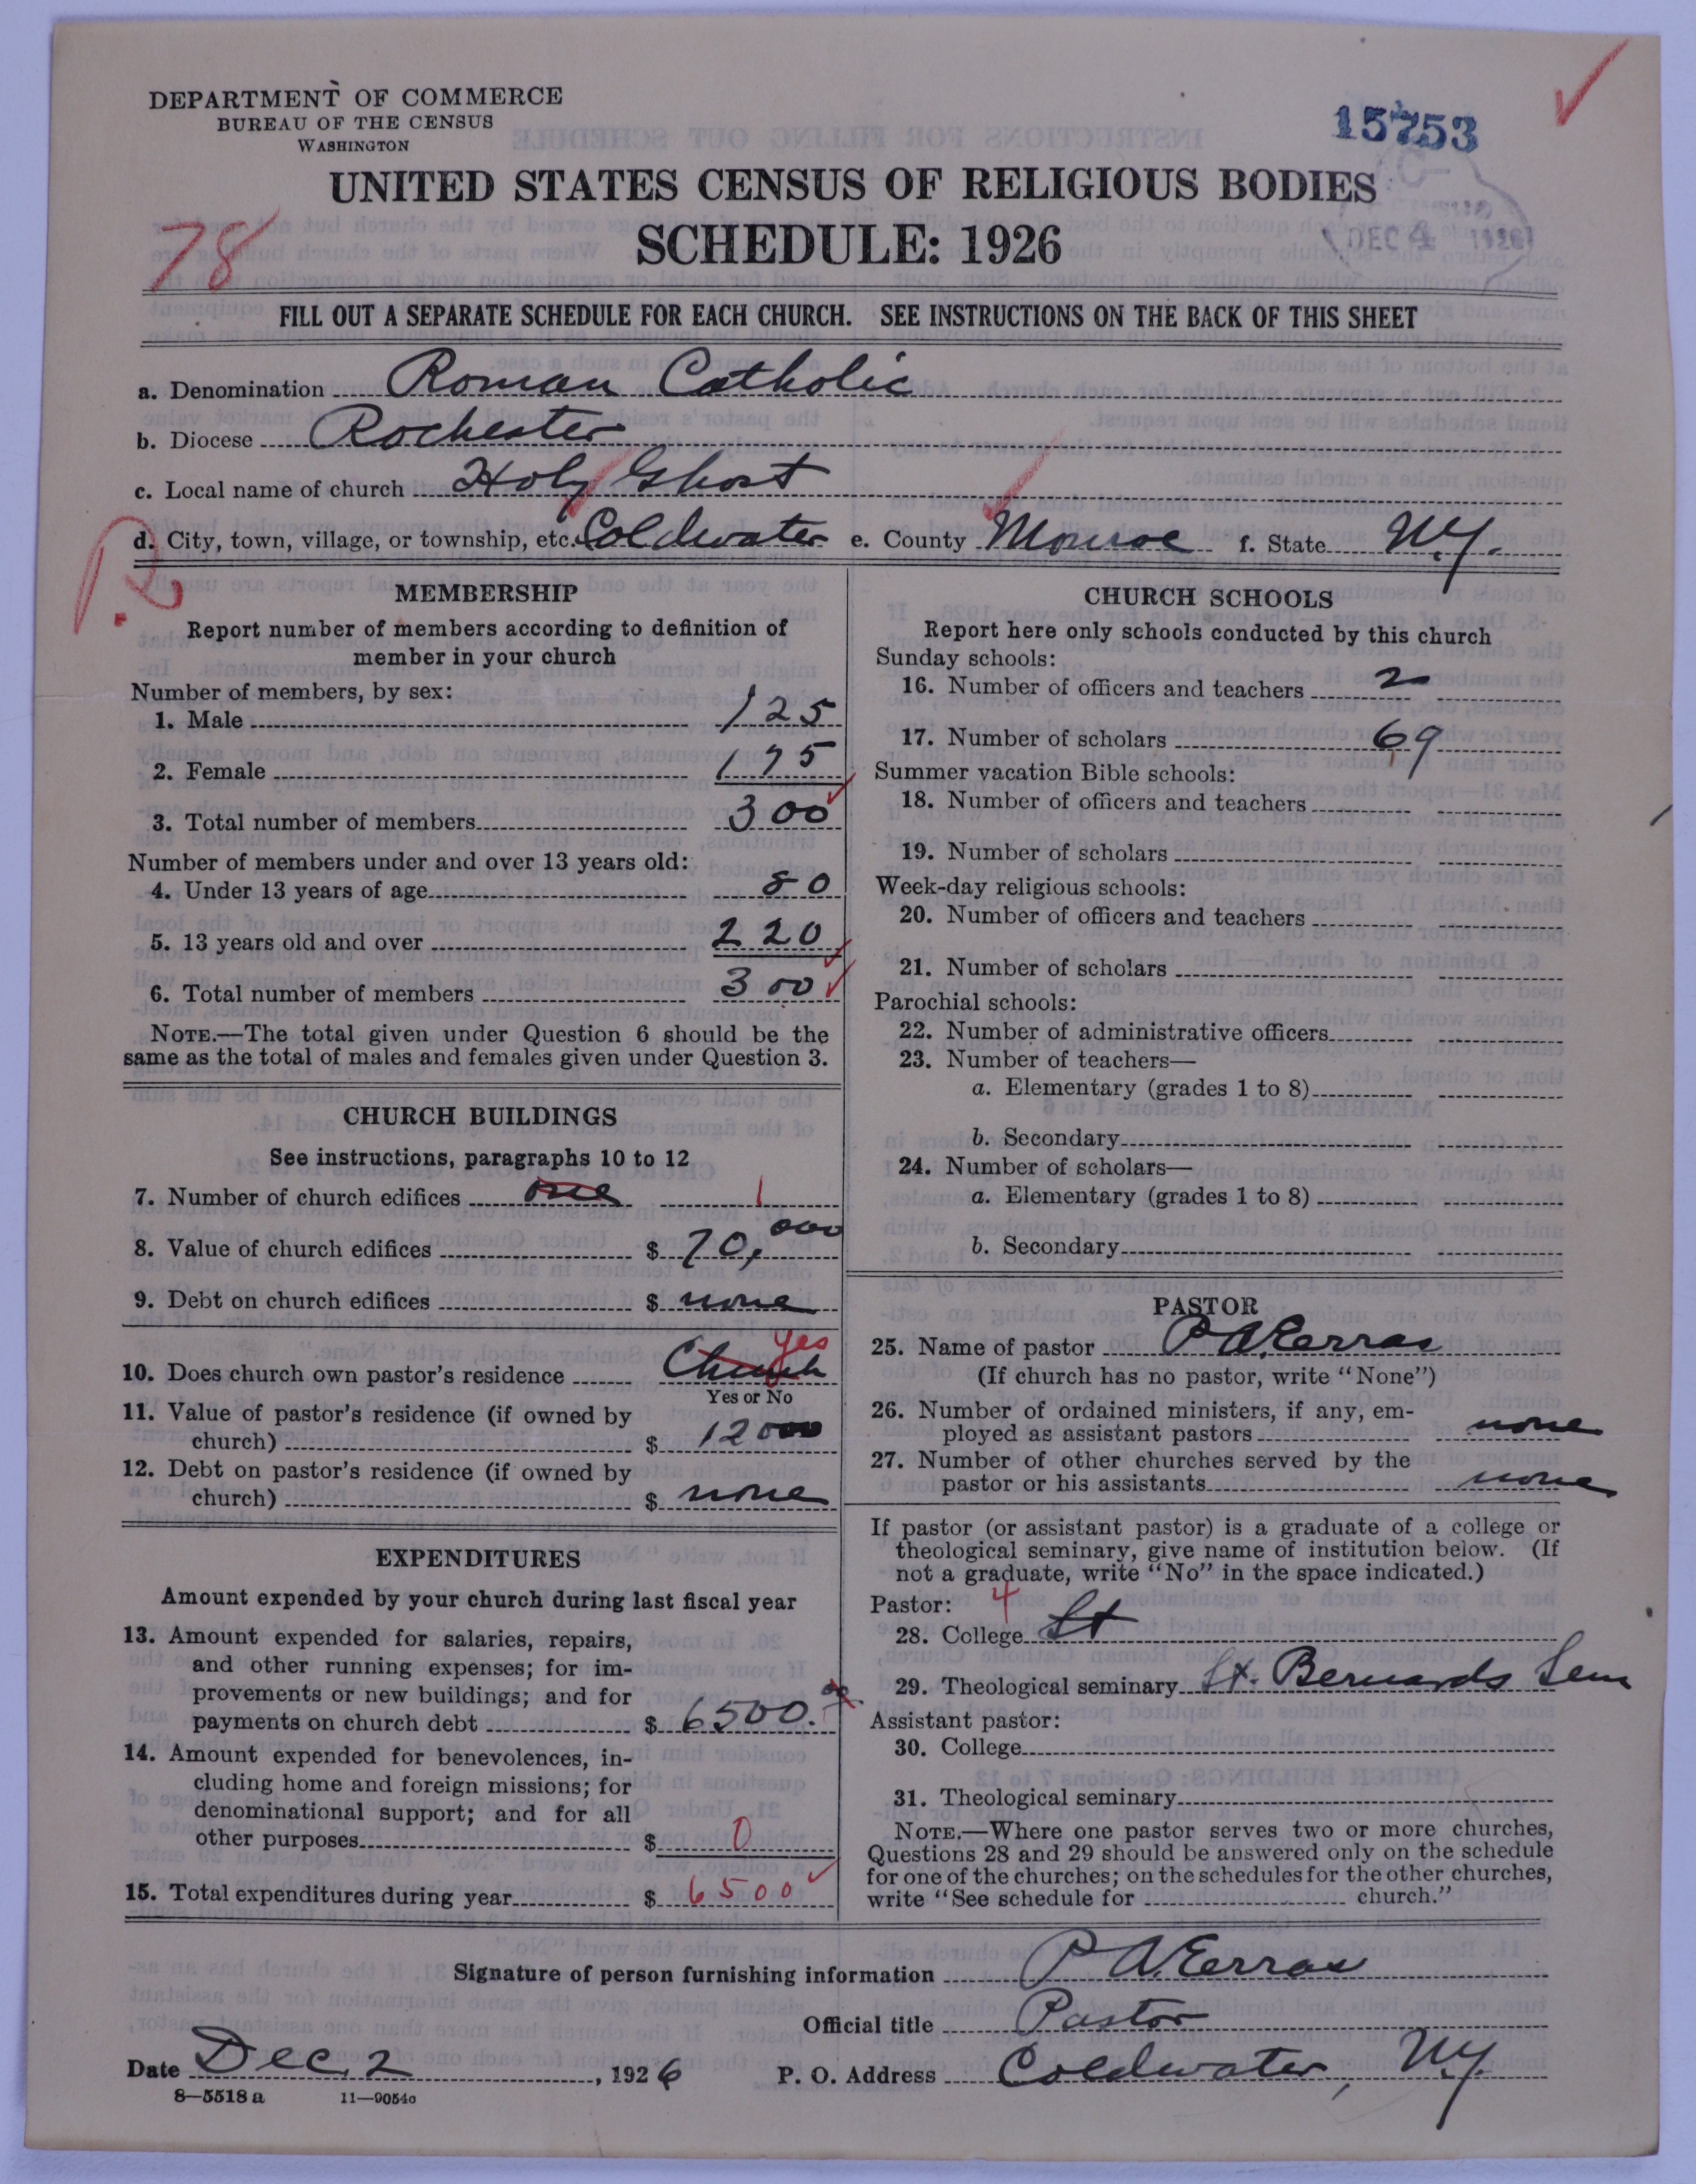 DEPARTMENT OF COMMERCE
BUREAU OF THE CENSUS
WASHINGTON
15753
UNITED STATES CENSUS OF RELIGIOUS BODIES
SCHEDULE: 1926
78
DEC 4 1926
FILL OUT A SEPARATE SCHEDULE FOR EACH CHURCH. SEE INSTRUCTIONS ON THE BACK OF THIS SHEET
a. Denomination Roman Catholic
b. Diocese Rochester
c. Local name of church Holy Ghost
d. City, town, village, or township, etc. Coldwater e. County Monroe f. State N.Y.
MEMBERSHIP
Report number of members according to definition of
member in your church
Number of members, by sex:
1. Male 125
2. Female 175
3. Total number of members 300
Number of members under and over 13 years old:
4. Under 13 years of age 80
5. 13 years old and over 220
6. Total number of members 300
NOTE.—The total given under Question 6 should be the
same as the total of males and females given under Question 3.
CHURCH BUILDINGS
See instructions, paragraphs 10 to 12
7. Number of church edifices one 1
8. Value of church edifices $ 70,000
9. Debt on church edifices $ none
10. Does church own pastor's residence Church yes
Yes or No
11. Value of pastor's residence (if owned by
church) $ 12000
12. Debt on pastor's residence (if owned by
church) $ none
EXPENDITURES
Amount expended by your church during last fiscal year
13. Amount expended for salaries, repairs,
and other running expenses; for im-
provements or new buildings; and for
payments on church debt $ 6500.00
14. Amount expended for benevolences, in-
cluding home and foreign missions; for
denominational support; and for all
other purposes $ 0
15. Total expenditures during year $ 6500
CHURCH SCHOOLS
Report here only schools conducted by this church
Sunday schools:
16. Number of officers and teachers 2
17. Number of scholars 69
Summer vacation Bible schools:
18. Number of officers and teachers
19. Number of scholars
Week-day religious schools:
20. Number of officers and teachers
21. Number of scholars
Parochial schools:
22. Number of administrative officers
23. Number of teachers—
a. Elementary (grades 1 to 8)
b. Secondary
24. Number of scholars—
a. Elementary (grades 1 to 8)
b. Secondary
PASTOR
25. Name of pastor P
(If church has no pastor, write "None")
26. Number of ordained ministers, if any, em-
ployed as assistant pastors none
27. Number of other churches served by the
pastor or his assistants none
If pastor (or assistant pastor) is a graduate of a college or
theological seminary, give name of institution below. (If
not a graduate, write "No" in the space indicated.)
Pastor: 4
28. College St
29. Theological seminary St. Bernards Sem
Assistant pastor:
30. College
31. Theological seminary
NOTE.—Where one pastor serves two or more churches,
Questions 28 and 29 should be answered only on the schedule
for one of the churches; on the schedules for the other churches,
write "See schedule for church."
Signature of person furnishing information P
Official title Pastor
Date Dec. 2, 1926 P. O. Address Coldwater, N.Y.
8—5518a 11—9054a